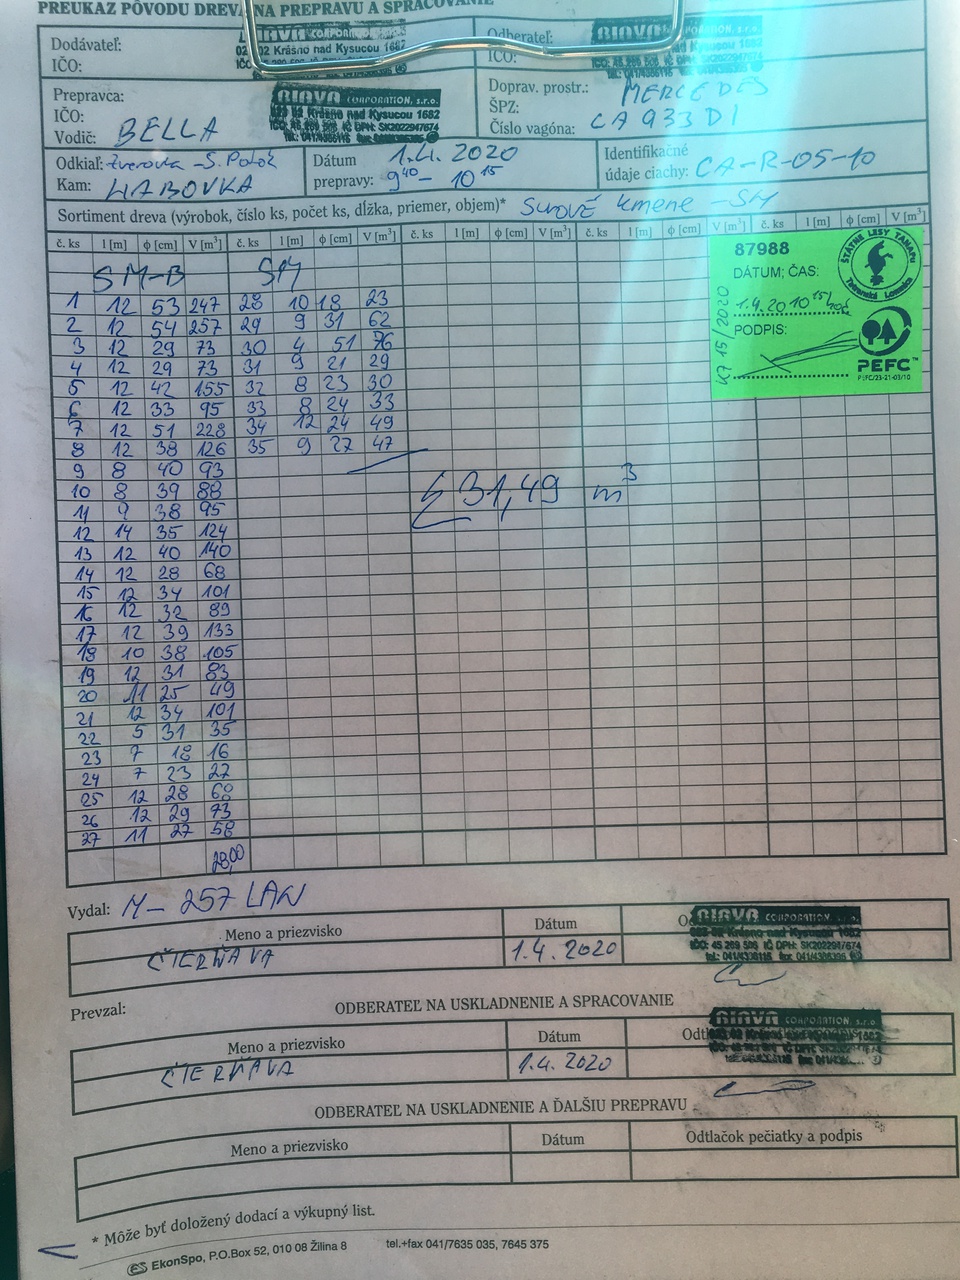 PREUKAZ PÔVODU DREVA NA PREPRAVU A SPRACOVANIE
Dodávateľ:
IČO:
CORPORATION
02 Krásno nad Kysucou 1682
Odberateľ:
IČO:
Prepravca:
IČO:
Vodič: BELLA
CORPORATION, s.r.o.
Krásno nad Kysucou 1682
IČO: 45 269 506 IČ DPH: SK2022947674
tel.: 041/4386116
Doprav. prostr.: MERCEDES
ŠPZ:
Číslo vagóna: CA 933 DI
Odkiaľ: Zverovka - S. Potok
Kam: HABOVKA
Dátum prepravy: 1.4. 2020
9 40 - 10 15
Identifikačné
údaje ciachy: CA-R-05-10
Sortiment dreva (výrobok, číslo ks, počet ks, dĺžka, priemer, objem)* Surové kmene - SM
č. ks l [m] ϕ [cm] V [m³] č. ks l [m] ϕ [cm] V [m³] č. ks l [m] ϕ [cm] V [m³] č. ks l [m] ϕ [cm] V [m³] č. ks l [m] ϕ [cm] V [m³]
SM-B SM
1 12 53 247 28 10 18 23
2 12 54 257 29 9 31 62
3 12 29 73 30 4 51 76
4 12 29 73 31 9 21 29
5 12 42 155 32 8 23 30
6 12 33 95 33 8 24 33
7 12 51 228 34 12 24 49
8 12 38 126 35 9 27 47
9 8 40 93
10 8 39 88
11 9 38 95
12 14 35 124
13 12 40 140
14 12 28 68
15 12 34 101
16 12 32 89
17 12 39 133
18 10 38 105
19 12 31 83
20 11 25 49
21 12 34 101
22 5 31 35
23 7 18 16
24 7 23 27
25 12 28 68
26 12 29 73
27 11 27 58
28,00
Σ 31,49 m³
87988
DÁTUM; ČAS:
1.4.20 10 15 hod
PODPIS:
K7 15/2020
ŠTÁTNE LESY TANAPu
Tatranská Lomnica
PEFC™
PEFC/23-21-03/10
Vydal: M - 257 LAN
Meno a priezvisko Dátum
ČTERŇAVA 1.4. 2020
CORPORATION, s.r.o.
Krásno nad Kysucou 1682
IČO: 45 269 506 IČ DPH: SK2022947674
Prevzal: ODBERATEĽ NA USKLADNENIE A SPRACOVANIE
Meno a priezvisko Dátum
ČTERŇAVA 1.4. 2020
CORPORATION, s.r.o.
ODBERATEĽ NA USKLADNENIE A ĎALŠIU PREPRAVU
Meno a priezvisko Dátum Odtlačok pečiatky a podpis
* Môže byť doložený dodací a výkupný list.
ES EkonSpo, P.O.Box 52, 010 08 Žilina 8 tel.+fax 041/7635 035, 7645 375